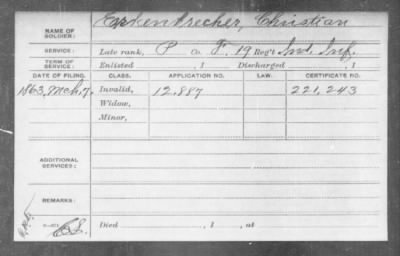 NAME OF SOLDIER: Erkenbrecher, Christian
SERVICE: Late rank, P Co. F, 19 Reg't Ind. Inf.
TERM OF SERVICE: Enlisted , 1 Discharged , 1
DATE OF FILING. CLASS. APPLICATION NO. LAW. CERTIFICATE NO.
1863, Mch, 7. Invalid, 12.887 221,243
Widow,
Minor,
ADDITIONAL SERVICES:
REMARKS:
Died , 1 , at